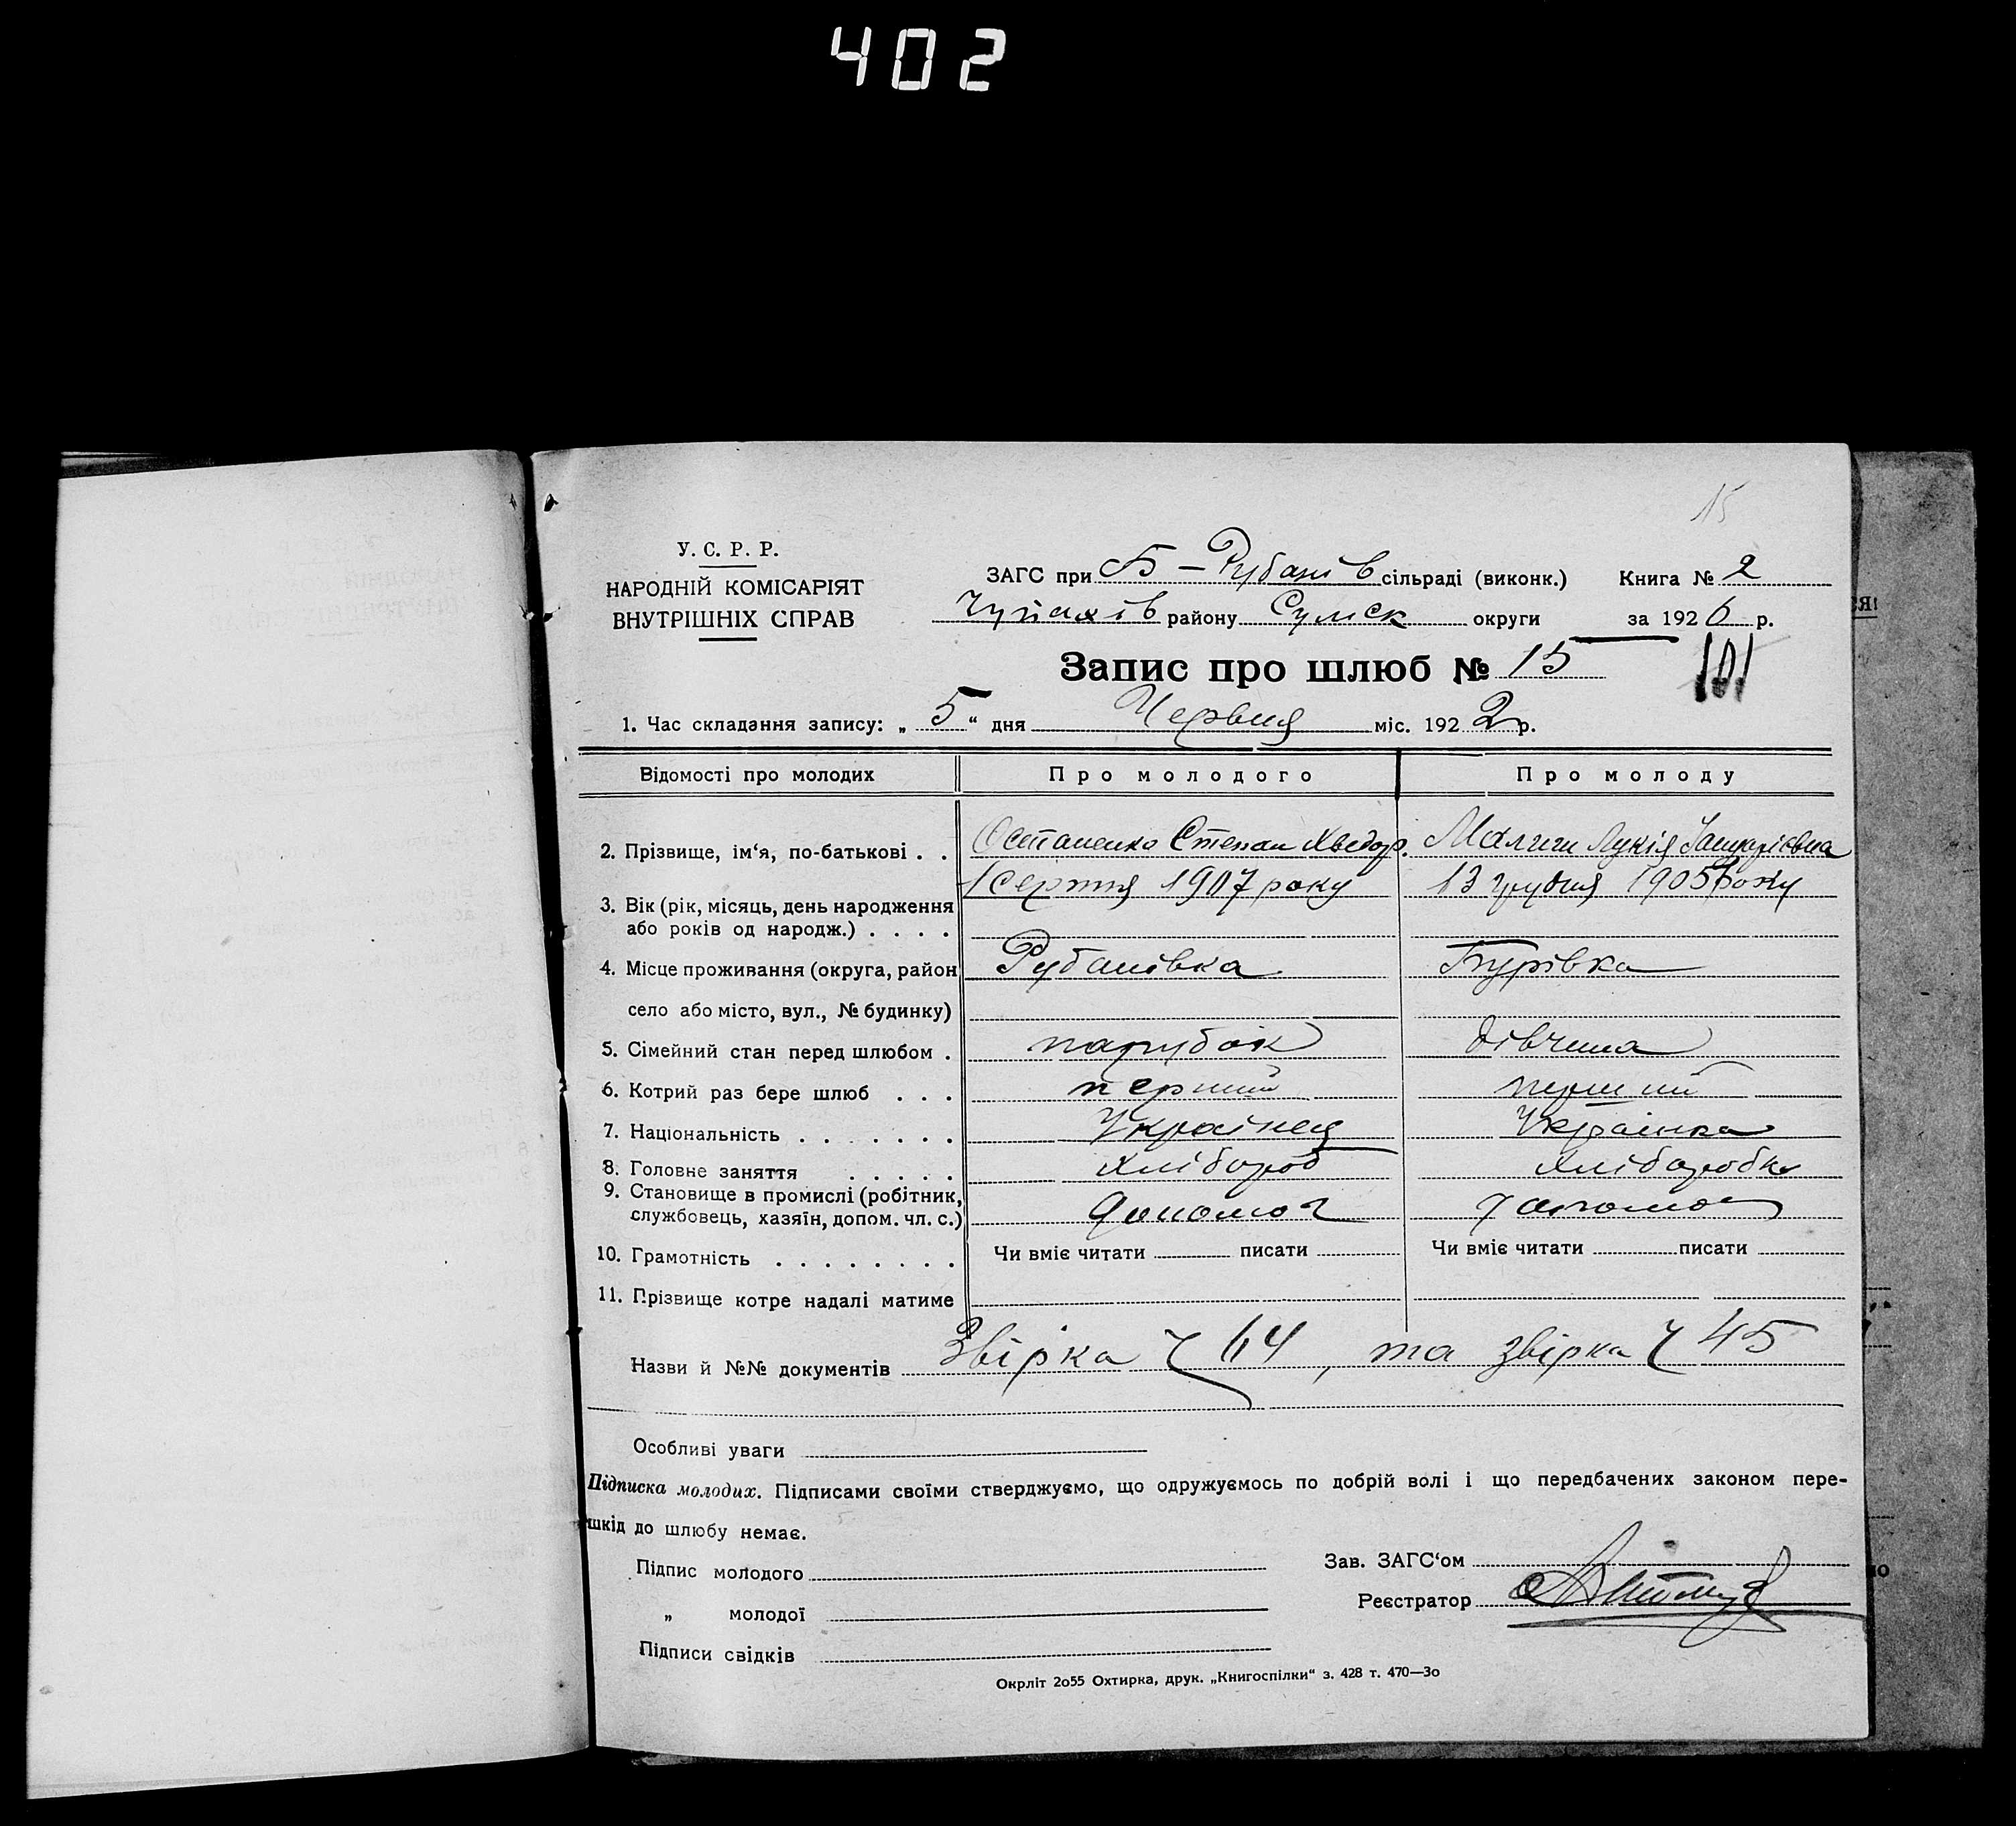 402
15
У. С. Р. Р.
НАРОДНІЙ КОМІСАРІЯТ
ВНУТРІШНІХ СПРАВ
ЗАГС при Б-Рубанів сільраді (виконк.) Книга № 2
Чупахів району Сумск округи за 1926 р.
Запис про шлюб № 15
101
1. Час складання запису: „ 5 “ дня Червня міс. 1922 р.
Відомості про молодих Про молодого Про молоду
2. Прізвище, ім‘я, по-батькові . . Остапенко Степан Хведор. Лукія Захаріевна
3. Вік (рік, місяць, день народження 1 серпня 1907 року 13 грудня 1905 року
або років од народж.) . . . .
4. Місце проживання (округа, район Рубанівка Бурівка
село або місто, вул., № будинку)
5. Сімейний стан перед шлюбом . парубок дівчина
6. Котрий раз бере шлюб . . . перший перший
7. Національність . . . . . . . Українец Українка
8. Головне заняття . . . . . Хлібороб хліборобка
9. Становище в промислі (робітник,
службовець, хазяїн, допом. чл. с.) допомог допомог
10. Грамотність . . . . . . . . Чи вміє читати писати Чи вміє читати писати
11. Прізвище котре надалі матиме
Назви й №№ документів Звірка ч 64 , та звірка ч 45
Особливі уваги
Підписка молодих. Підписами своїми стверджуємо, що одружуємось по добрій волі і що передбачених законом пере-
шкід до шлюбу немає.
Підпис молодого Зав. ЗАГС‘ом
„ молодої Реєстратор
Підписи свідків
Окрліт 2о55 Охтирка, друк. „Книгоспілки“ з. 428 т. 470—3о